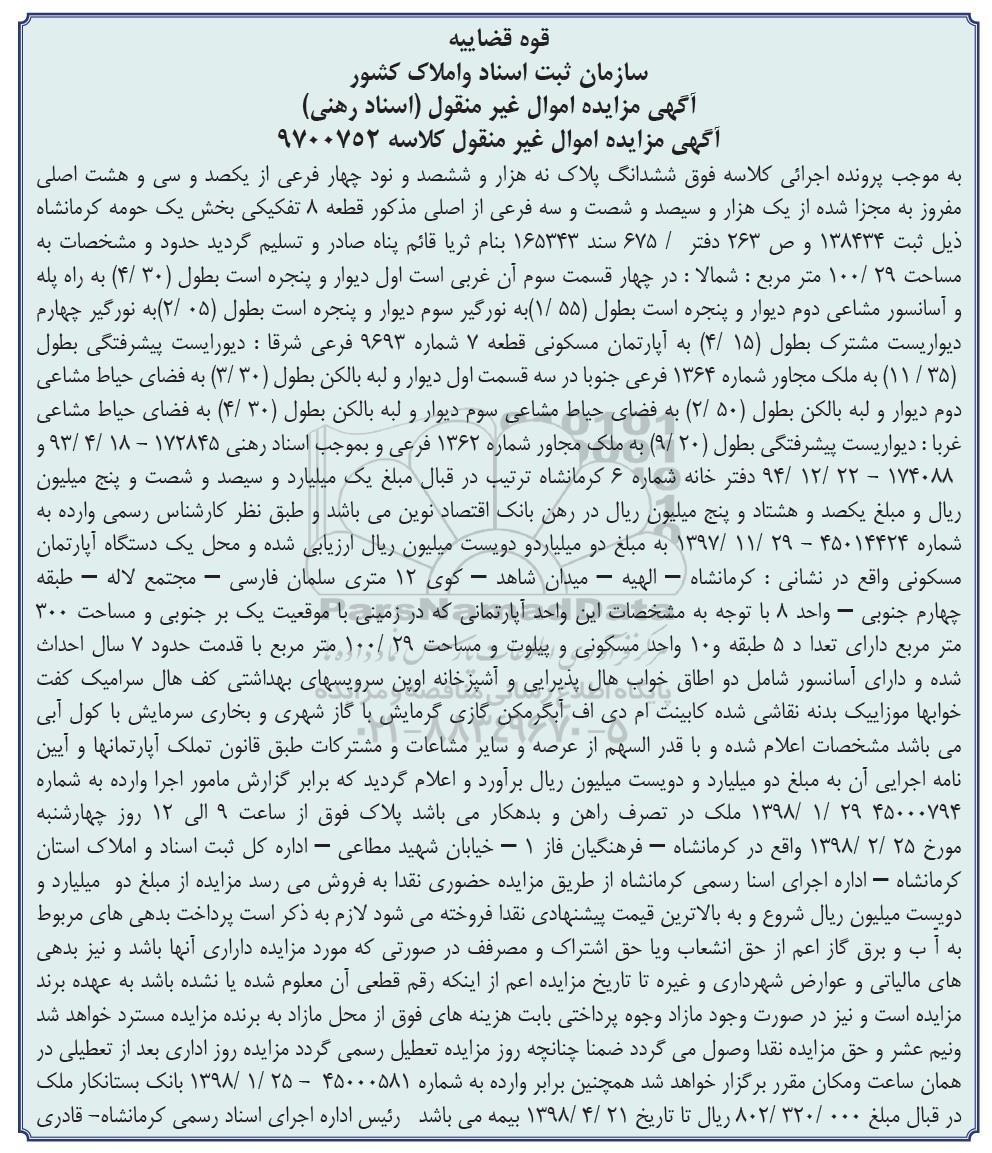 قوه قضاییه
سازمان ثبت اسناد واملاک کشور
آگهی مزایده اموال غیر منقول (اسناد رهنی)
آگهی مزایده اموال غیر منقول کلاسه ۹۷۰۰۷۵۲
به موجب پرونده اجرائی کلاسه فوق ششدانگ پلاک نه هزار و ششصد و نود چهار فرعی از یکصد و سی و هشت اصلی
مفروز به مجزا شده از یک هزار و سیصد و شصت و سه فرعی از اصلی مذکور قطعه ۸ تفکیکی بخش یک حومه کرمانشاه
ذیل ثبت ۱۳۸۴۳۴ و ص ۲۶۳ دفتر / ۶۷۵ سند ۱۶۵۳۴۳ بنام ثریا قائم پناه صادر و تسلیم گردید حدود و مشخصات به
مساحت ۲۹ /۱۰۰ متر مربع : شمالا : در چهار قسمت سوم آن غربی است اول دیوار و پنجره است بطول (۳۰ /۴) به راه پله
و آسانسور مشاعی دوم دیوار و پنجره است بطول (۵۵ /۱)به نورگیر سوم دیوار و پنجره است بطول (۰۵ /۲)به نورگیر چهارم
دیواریست مشترک بطول (۱۵ /۴) به آپارتمان مسکونی قطعه ۷ شماره ۹۶۹۳ فرعی شرقا : دیورایست پیشرفتگی بطول
(۳۵ / ۱۱) به ملک مجاور شماره ۱۳۶۴ فرعی جنوبا در سه قسمت اول دیوار و لبه بالکن بطول (۳۰ /۳) به فضای حیاط مشاعی
دوم دیوار و لبه بالکن بطول (۵۰ /۲) به فضای حیاط مشاعی سوم دیوار و لبه بالکن بطول (۳۰ /۴) به فضای حیاط مشاعی
غربا : دیواریست پیشرفتگی بطول (۲۰ /۹) به ملک مجاور شماره ۱۳۶۲ فرعی و بموجب اسناد رهنی ۱۷۲۸۴۵ – ۱۸ /۴ /۹۳ و
۱۷۴۰۸۸ – ۲۲ /۱۲ /۹۴ دفتر خانه شماره ۶ کرمانشاه ترتیب در قبال مبلغ یک میلیارد و سیصد و شصت و پنج میلیون
ریال و مبلغ یکصد و هشتاد و پنج میلیون ریال در رهن بانک اقتصاد نوین می باشد و طبق نظر کارشناس رسمی وارده به
شماره ۴۵۰۱۴۴۲۴ – ۲۹ /۱۱ /۱۳۹۷ به مبلغ دو میلیاردو دویست میلیون ریال ارزیابی شده و محل یک دستگاه آپارتمان
مسکونی واقع در نشانی : کرمانشاه – الهیه – میدان شاهد – کوی ۱۲ متری سلمان فارسی – مجتمع لاله – طبقه
چهارم جنوبی – واحد ۸ با توجه به مشخصات این واحد آپارتمانی که در زمینی با موقعیت یک بر جنوبی و مساحت ۳۰۰
متر مربع دارای تعدا د ۵ طبقه و۱۰ واحد مسکونی و پیلوت و مساحت ۲۹ /۱۰۰ متر مربع با قدمت حدود ۷ سال احداث
شده و دارای آسانسور شامل دو اطاق خواب هال پذیرایی و آشپزخانه اوپن سرویسهای بهداشتی کف هال سرامیک کفت
خوابها موزاییک بدنه نقاشی شده کابینت ام دی اف آبگرمکن گازی گرمایش با گاز شهری و بخاری سرمایش با کول آبی
می باشد مشخصات اعلام شده و با قدر السهم از عرصه و سایر مشاعات و مشترکات طبق قانون تملک آپارتمانها و آیین
نامه اجرایی آن به مبلغ دو میلیارد و دویست میلیون ریال برآورد و اعلام گردید که برابر گزارش مامور اجرا وارده به شماره
۴۵۰۰۰۷۹۴ ۲۹ /۱ /۱۳۹۸ ملک در تصرف راهن و بدهکار می باشد پلاک فوق از ساعت ۹ الی ۱۲ روز چهارشنبه
مورخ ۲۵ /۲ /۱۳۹۸ واقع در کرمانشاه – فرهنگیان فاز ۱ – خیابان شهید مطاعی – اداره کل ثبت اسناد و املاک استان
کرمانشاه – اداره اجرای اسنا رسمی کرمانشاه از طریق مزایده حضوری نقدا به فروش می رسد مزایده از مبلغ دو میلیارد و
دویست میلیون ریال شروع و به بالاترین قیمت پیشنهادی نقدا فروخته می شود لازم به ذکر است پرداخت بدهی های مربوط
به آ ب و برق گاز اعم از حق انشعاب ویا حق اشتراک و مصرفف در صورتی که مورد مزایده داراری آنها باشد و نیز بدهی
های مالیاتی و عوارض شهرداری و غیره تا تاریخ مزایده اعم از اینکه رقم قطعی آن معلوم شده یا نشده باشد به عهده برند
مزایده است و نیز در صورت وجود مازاد وجوه پرداختی بابت هزینه های فوق از محل مازاد به برنده مزایده مسترد خواهد شد
ونیم عشر و حق مزایده نقدا وصول می گردد ضمنا چنانچه روز مزایده تعطیل رسمی گردد مزایده روز اداری بعد از تعطیلی در
همان ساعت ومکان مقرر برگزار خواهد شد همچنین برابر وارده به شماره ۴۵۰۰۰۵۸۱ – ۲۵ /۱ /۱۳۹۸ بانک بستانکار ملک
در قبال مبلغ ۰۰۰ /۳۲۰ /۸۰۲ ریال تا تاریخ ۲۱ /۴ /۱۳۹۸ بیمه می باشد رئیس اداره اجرای اسناد رسمی کرمانشاه- قادری
ParsNamadData
پایگاه اطلاع رسانی مناقصه و مزایده
۰۲۱-۸۸۳۴۹۶۷۰-۵